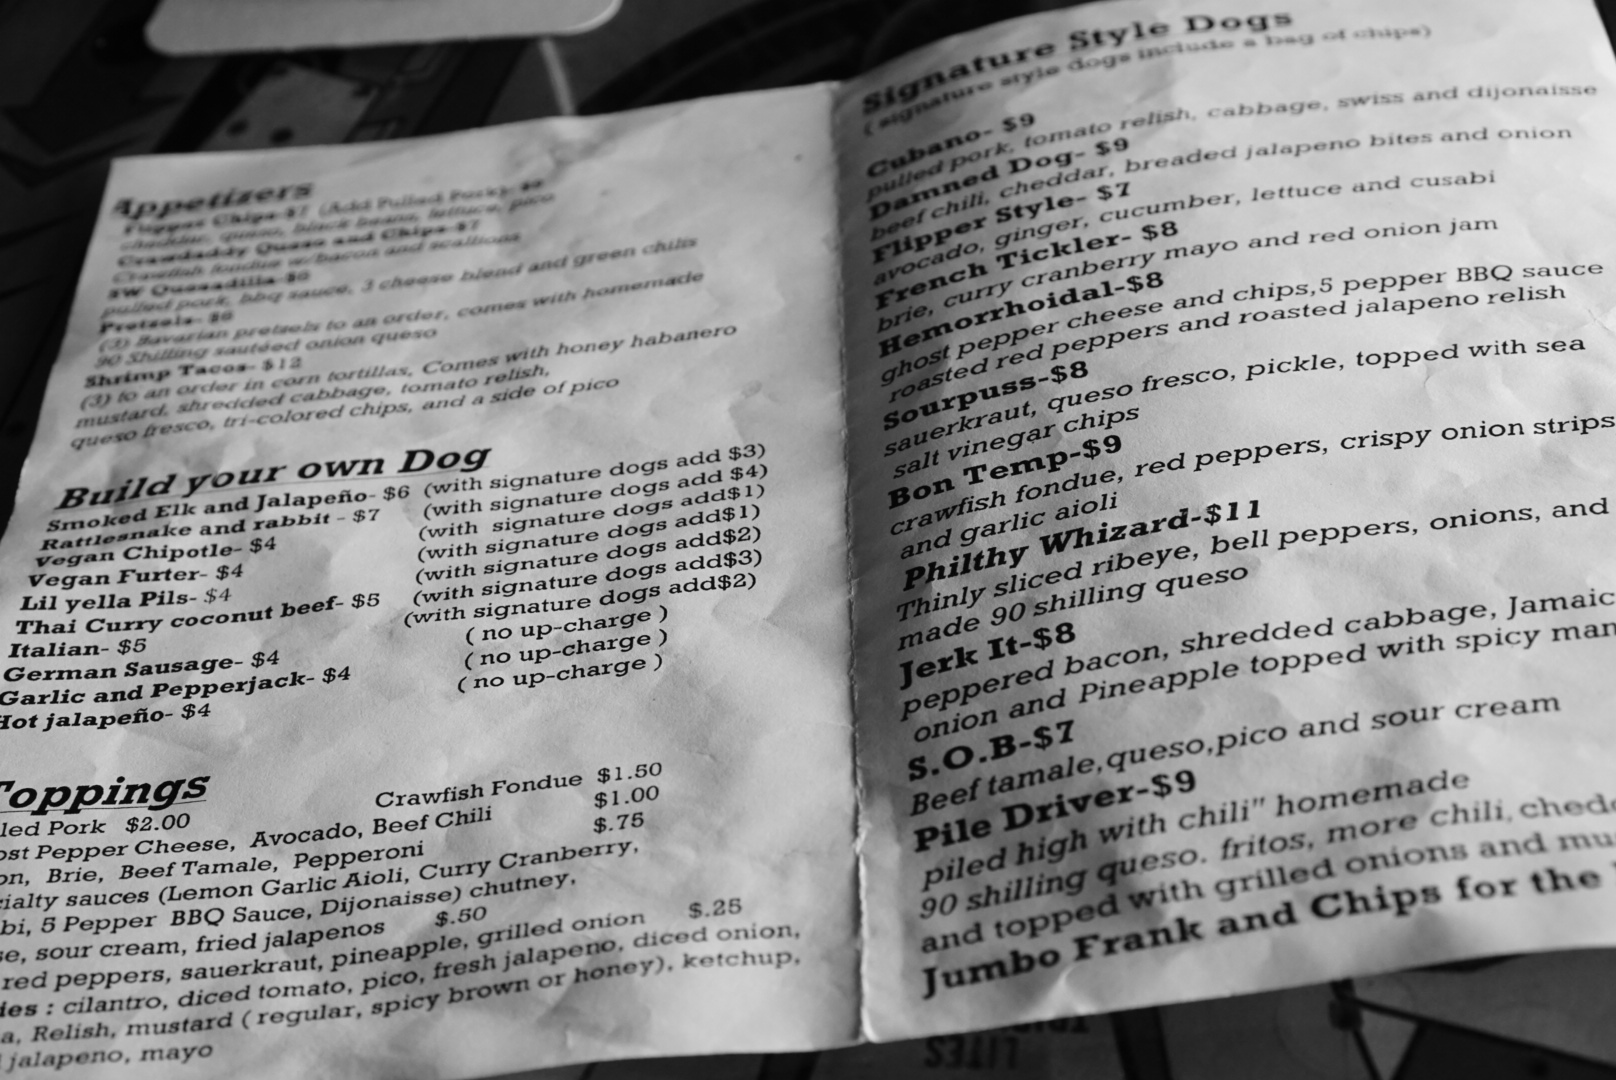 Appetizers
Flipper Chips-$7 (Add Pulled Pork)
cheddar, queso, black beans, lettuce, pico
Crawdaddy Queso and Chips-$7
Crawfish fondue w/bacon and scallions
SW Quesadilla-$6
pulled pork, bbq sauce, 3 cheese blend and green chilis
Pretzels- $6
(3) Bavarian pretzels to an order, comes with homemade
90 Shilling sautéed onion queso
Shrimp Tacos- $12
(3) to an order in corn tortillas, Comes with honey habanero
mustard, shredded cabbage, tomato relish,
queso fresco, tri-colored chips, and a side of pico
Build your own Dog
Smoked Elk and Jalapeño- $6 (with signature dogs add $3)
Rattlesnake and rabbit - $7 (with signature dogs add $4)
Vegan Chipotle- $4 (with signature dogs add$1)
Vegan Furter- $4 (with signature dogs add$1)
Lil yella Pils- $4 (with signature dogs add$2)
Thai Curry coconut beef- $5 (with signature dogs add$3)
Italian- $5 (with signature dogs add$2)
German Sausage- $4 ( no up-charge )
Garlic and Pepperjack- $4 ( no up-charge )
Hot jalapeño- $4 ( no up-charge )
Toppings
led Pork $2.00 Crawfish Fondue $1.50
ost Pepper Cheese, Avocado, Beef Chili $1.00
on, Brie, Beef Tamale, Pepperoni $.75
ialty sauces (Lemon Garlic Aioli, Curry Cranberry,
bi, 5 Pepper BBQ Sauce, Dijonaisse) chutney,
se, sour cream, fried jalapenos $.50
red peppers, sauerkraut, pineapple, grilled onion $.25
ies : cilantro, diced tomato, pico, fresh jalapeno, diced onion,
a, Relish, mustard ( regular, spicy brown or honey), ketchup,
jalapeno, mayo
Signature Style Dogs
(signature style dogs include a bag of chips)
Cubano- $9
pulled pork, tomato relish, cabbage, swiss and dijonaisse
Damned Dog- $9
beef chili, cheddar, breaded jalapeno bites and onion
Flipper Style- $7
avocado, ginger, cucumber, lettuce and cusabi
French Tickler- $8
brie, curry cranberry mayo and red onion jam
Hemorrhoidal-$8
ghost pepper cheese and chips,5 pepper BBQ sauce
roasted red peppers and roasted jalapeno relish
Sourpuss-$8
sauerkraut, queso fresco, pickle, topped with sea
salt vinegar chips
Bon Temp-$9
crawfish fondue, red peppers, crispy onion strips
and garlic aioli
Philthy Whizard-$11
Thinly sliced ribeye, bell peppers, onions, and
made 90 shilling queso
Jerk It-$8
peppered bacon, shredded cabbage, Jamaic
onion and Pineapple topped with spicy man
S.O.B-$7
Beef tamale,queso,pico and sour cream
Pile Driver-$9
piled high with chili" homemade
90 shilling queso. fritos, more chili, chedd
and topped with grilled onions and mu
Jumbo Frank and Chips for the